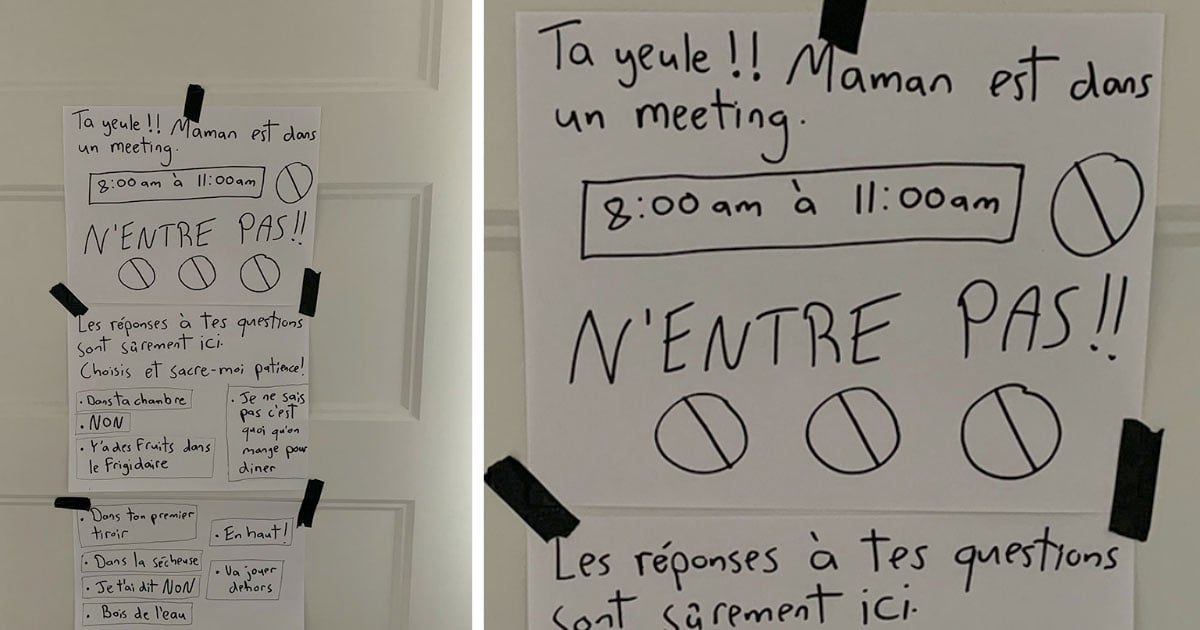 Ta yeule!! Maman est dans
un meeting.
8:00 am à 11:00am
N'ENTRE PAS!!
Les réponses à tes questions
sont sûrement ici.
Choisis et sacre-moi patience!
• Dans ta chambre
• NON
• Y'a des fruits dans
le frigidaire
• Je ne sais
pas c'est
quoi qu'on
mange pour
diner
• Dans ton premier
tiroir
• Dans la sécheuse
• Je t'ai dit NON
• Bois de l'eau
• En haut!
• Va jouer
dehors
Ta yeule!! Maman est dans
un meeting.
8:00 am à 11:00am
N'ENTRE PAS!!
Les réponses à tes questions
sont sûrement ici.